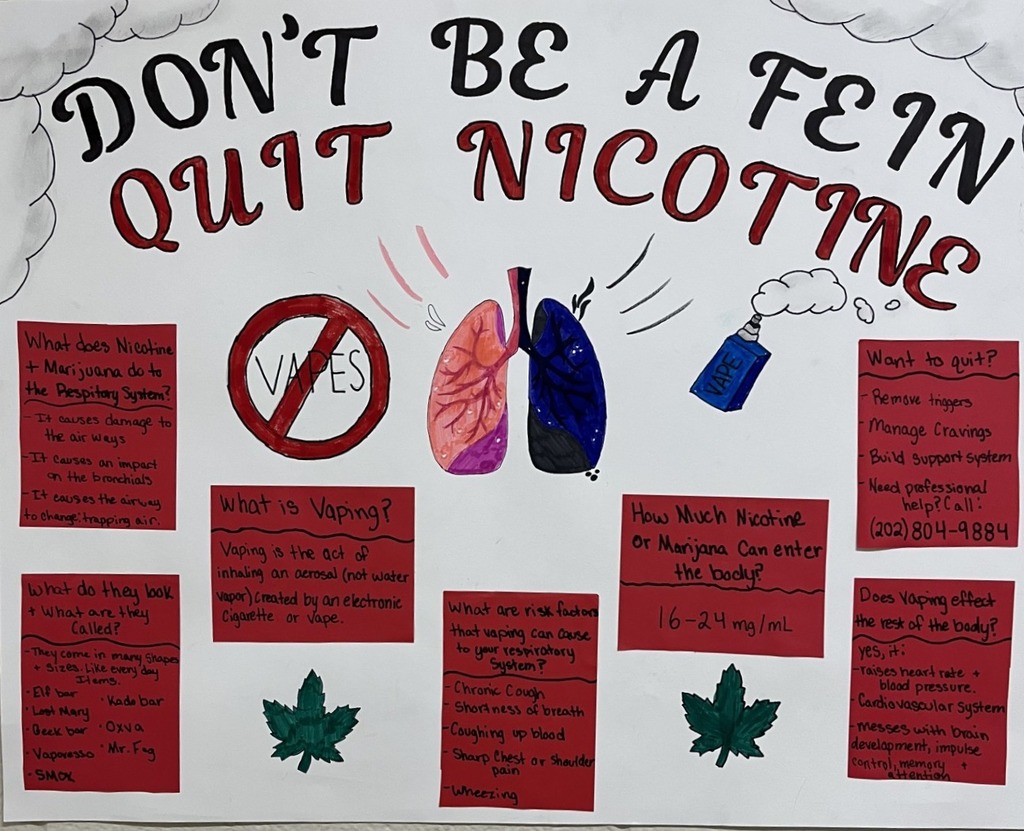 DON'T BE A FEIN
QUIT NICOTINE
VAPES
VAPE
What does Nicotine
+ Marijuana do to
the Respitory System?
- It causes damage to
the air ways
- It causes an impact
on the bronchials
- It causes the airway
to change: trapping air.
What do they look
+ What are they
Called?
- They come in many shapes
+ sizes. Like every day
Items.
· Elf bar
· Kado bar
· Lost Mary
· Geek bar
· Oxva
· Vaporesso
· Mr. Fog
· SMOK
What is Vaping?
Vaping is the act of
inhaling an aerosol (not water
vapor) created by an electronic
Cigarette or vape.
What are risk factors
that vaping can cause
to your respiratory
System?
- Chronic Cough
- Shortness of breath
- Coughing up blood
- Sharp Chest or shoulder
pain
- Wheezing
How Much Nicotine
or Marijana Can enter
the body?
16-24 mg/mL
Want to quit?
- Remove triggers
- Manage Cravings
- Build support system
- Need professional
help? Call:
(202) 804-9884
Does Vaping effect
the rest of the body?
yes, it:
- raises heart rate +
blood pressure.
- Cardiovascular System
- messes with brain
development, impulse
control, memory +
attention